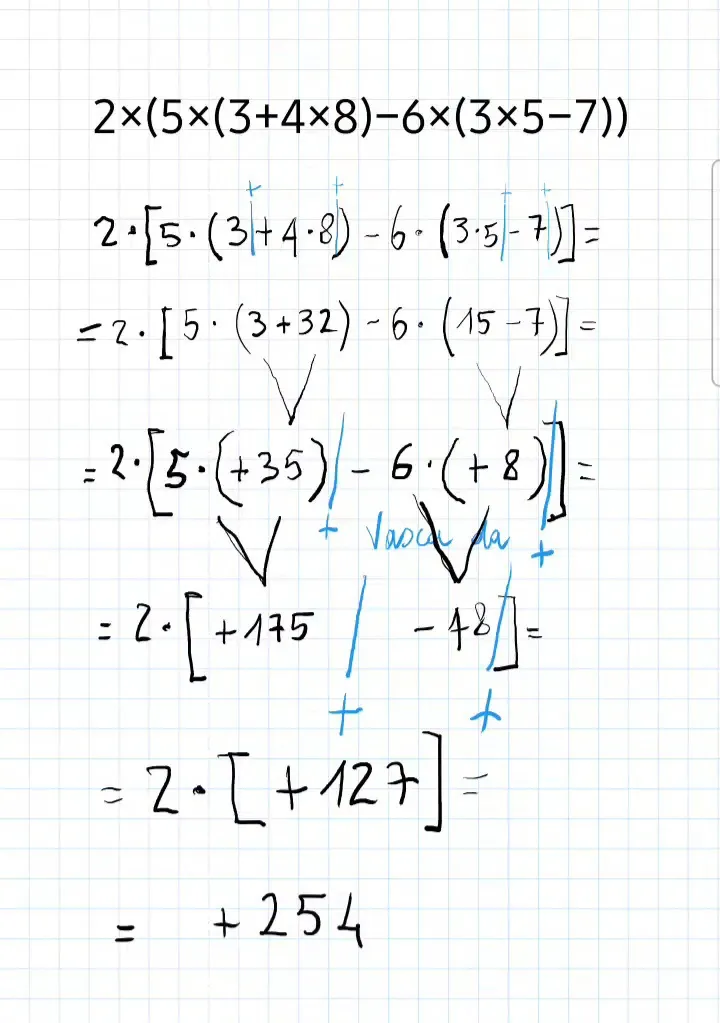 2×(5×(3+4×8)−6×(3×5−7))
+ + + +
2·[5·(3|+4·8|)-6·(3·5|-7|)]=
=2·[5·(3+32)-6·(15-7)]=
=2·[5·(+35)|-6·(+8)|]=
+ Vasca da +
=2·[+175 | -48|]=
+ +
=2·[+127]=
= +254